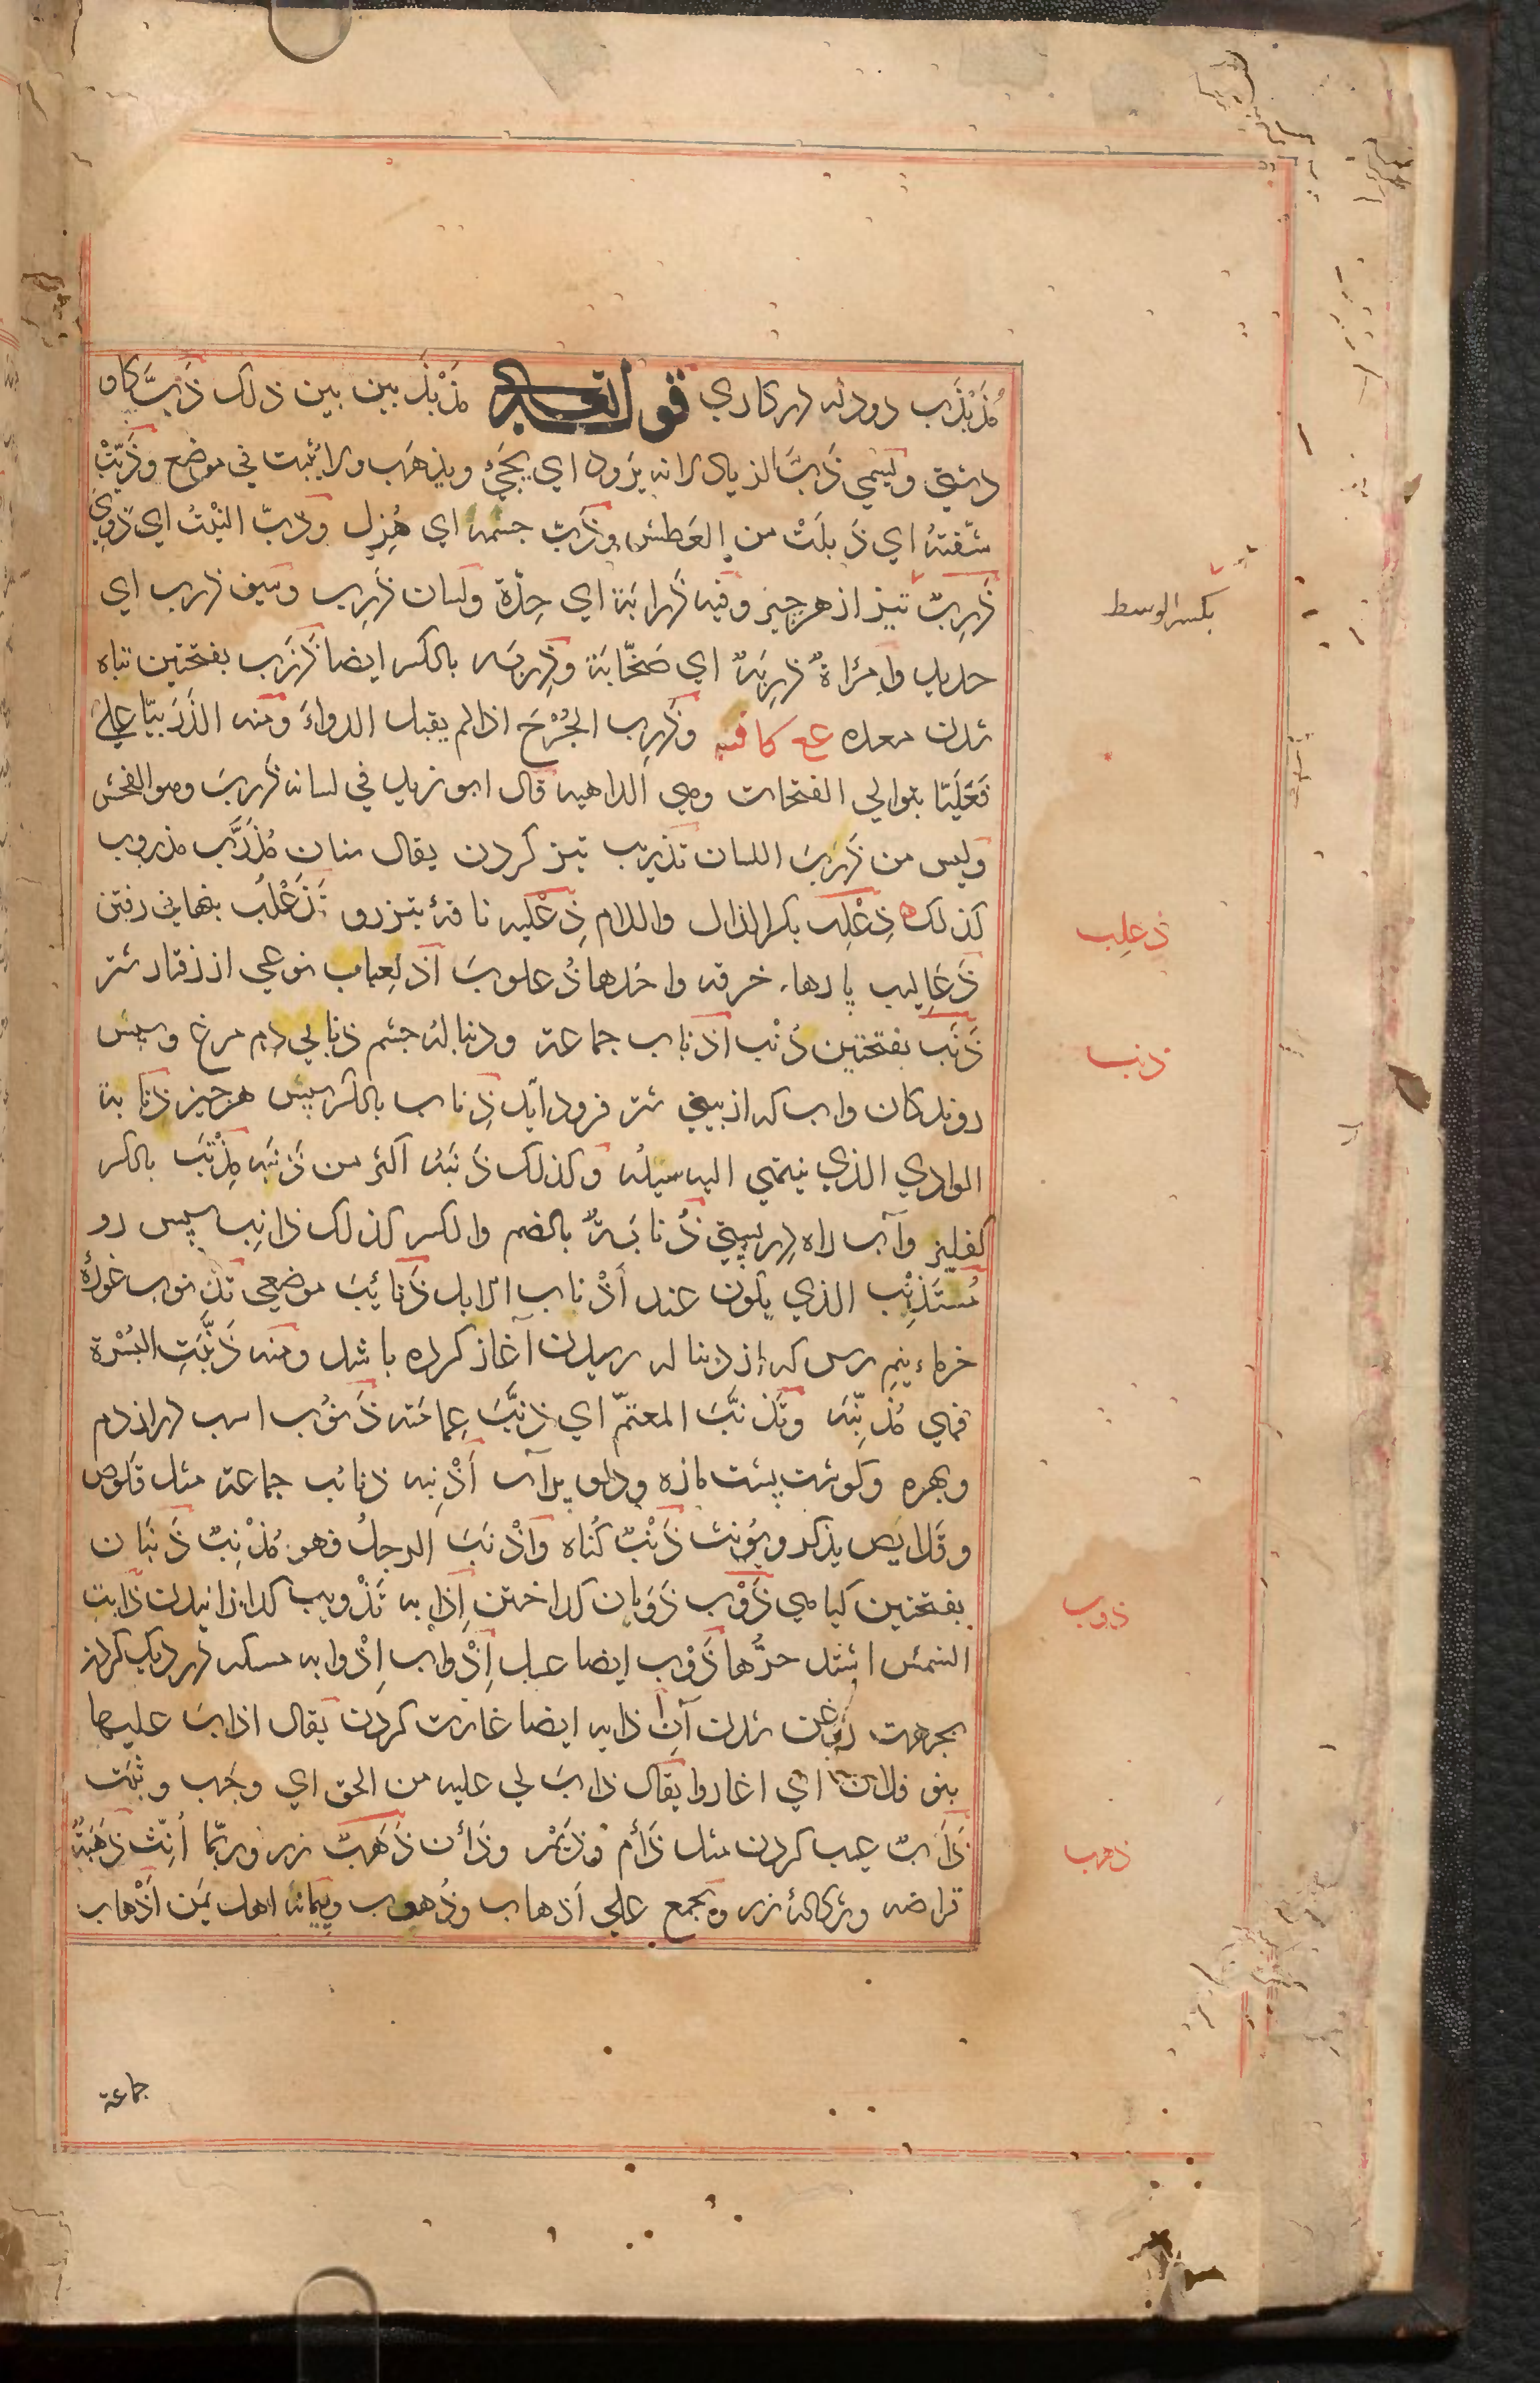 مُذَبْذَب دودله در کاری قوله تعالی مُذَبْذَبین بین ذلک ذَبّ کاو
دشتی ویسمی ذَبّ الذیاد لانه یَرود ای یجیٔ ویذهَب ولا یثبت فی موضع وذَبّتْ
شفتهُ ای ذَبلَتْ من العَطش وذَبّ جسمه ای هُزِل وذبّ النبْتُ ای ذَوِیَ
ذَرِبٌ تیز از هر چیز وفیه ذَرابَة ای حِدّة ولسان ذَرِب وسیف ذرب ای
بکسر الوسط
حدید وامْرَاةٌ ذرِبَةٌ ای صَخّابَة وذِربَه بالکسر ایضا ذَرَب بفتحتین تباه
شدن معده عع کافیه وذَرِب الجُرْحَ اذا لم یقبل الدواءَ ومنه الذَرَبیّا علیٰ
فَعَلَیّا بتوالی الفتحات وهی الداهیه قال ابو زید فی لسانه ذَربَ وهو الفحش
ولیس من ذَرَبَ اللسان تذریب تیز کردن یقال سنان مُذَرَّب مذروب
کذلک ذِعْلِب بکسر الذال واللام ذِعْلبه ناقهٔ تیزرو تَذَعْلُب بنهانی رفتن
ذعلِب
ذَعَالیب پارهاء خرقه واحدها ذُعلوبَ اذلِعباب نوعی از رفتار شتر
ذَنَب بفتحتین دُنْب اذناب جماعة ودنباله چشم ذنابی دم مرغ وسپس
ذنب
روندکان واب که از بینی شتر فرود آید ذِناب بالکسر سپس هر چیز ذنابة
الوادی الذی ینتهی الیه سیله وکذلک ذَنَبَهُ اکثر من ذَنَبَه مِذْنَب بالکسر
کفلیز وآب راه در پستی ذُنابَةٌ بالضم والکسر کذلک ذانِب سپس رو
مُستَذنِب الذی یکون عند اَذْناب الابل ذَنائِبَ موضعی تذنوب غورهٔ
خرماء نیم رس که از دنباله رسیدن آغاز کرده باشد ومنه ذَنَّبَتِ البُسْرة
فهی مُذنِّبَه وتَذنَّبَ المعتمّ ای ذنَّبَ عِمامَته ذَنوُب اسب دراز دم
وبهره وکوشت پشت مازه ودلو پرآب اَذْنِبه ذنائب جماعة مثل قَلوص
وقَلایَص یذکر ویؤنث ذَنْبٌ کُناه واَذْنَبَ الرجلُ فهو مُذْنِبٌ ذَنَبَان
بفتحتین کیاهی ذَوْب ذَوَبان کداختن اِذابه تَذْویب کدازانیدن ذابت
ذوب
الشمس اشتد حرُّها ذَوْب ایضا عسل اِذْواب اِذْوابه مسکه در دیک کردن
بجرهت روغن شدن آن اذابه ایضا غارت کردن یقال اذابَ علیها
بنو فلان ای اغاروا یقال ذابَ لی علیه من الحق ای وجَب وثبَت
ذَاَبٌ عیب کردن مثل ذَاْم وذَیْم وذَاْن ذَهَبٌ زر وربّما اُنِّث ذَهَبَةٌ
ذهب
قراضه وشرکالهٔ زر ویجمع علی اَذهاب وذُهوب وپیمانه اهل یَمَن اَذْهاب
جماعة